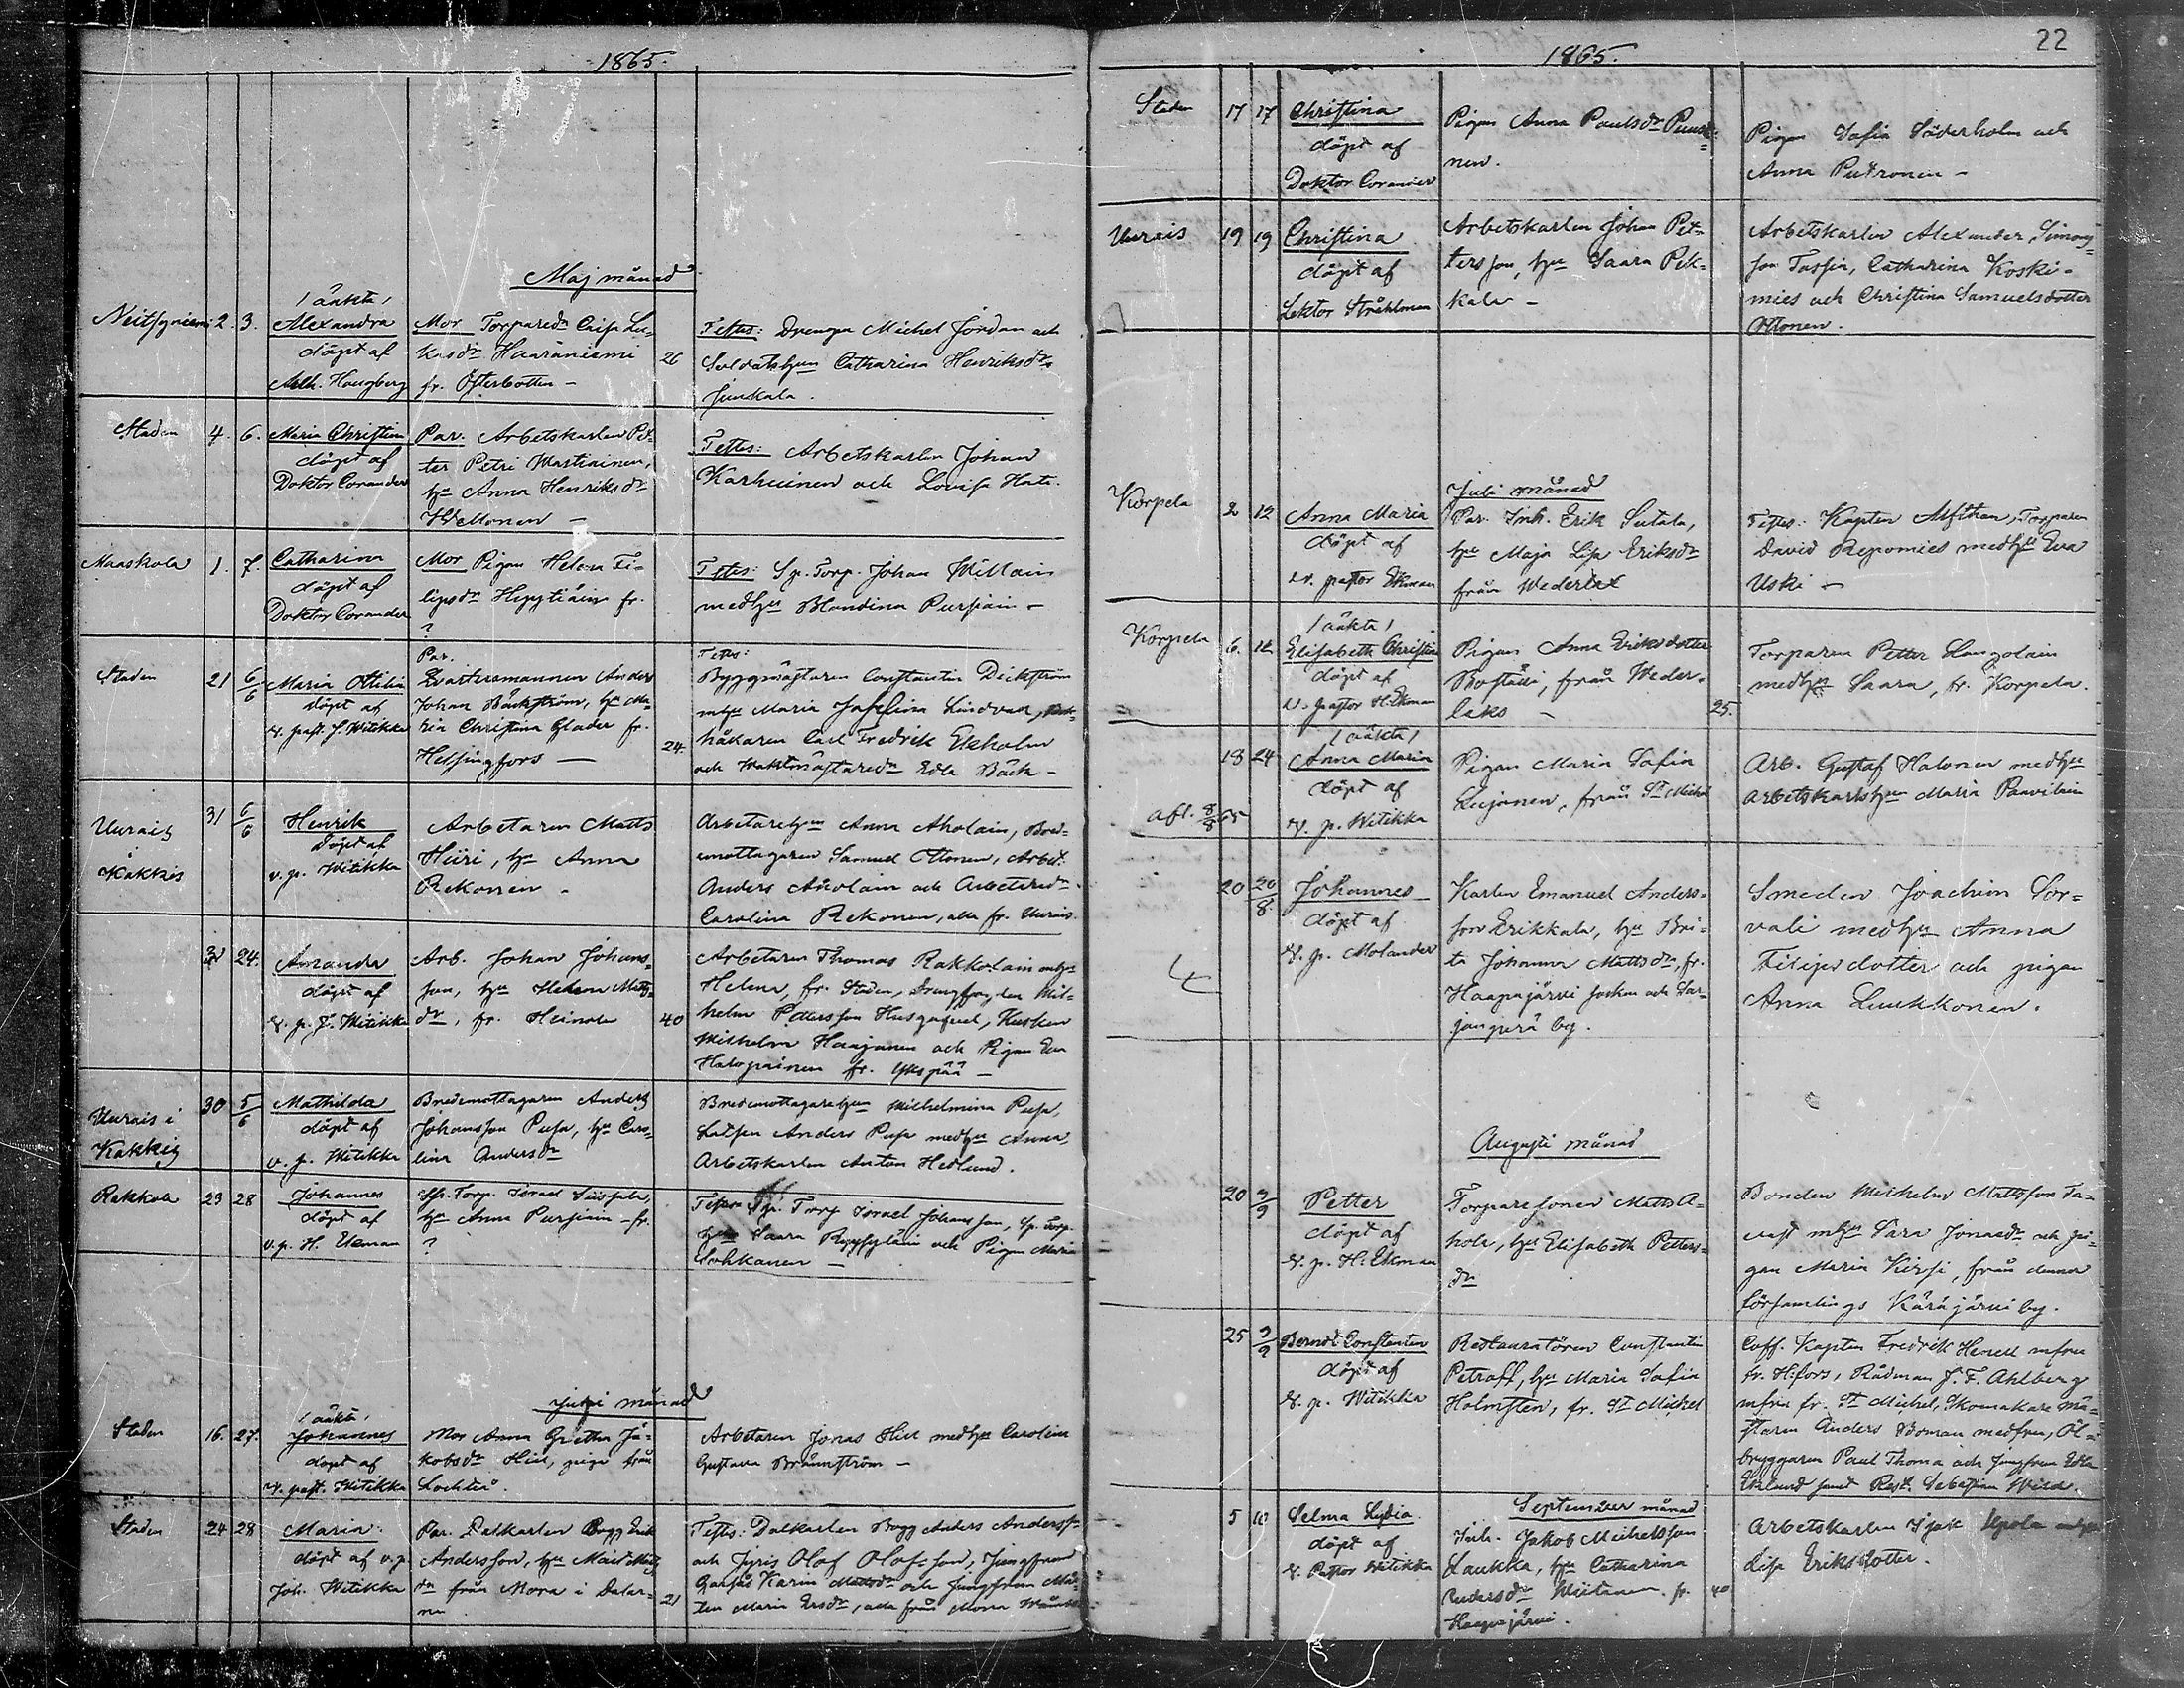 1865.
Maj månad
Neitsyniemi 2. 3.
/ oäkta /
Alexandra
döpt af
Mor Torparedr Caisa Lu-
kasdr Haaraniemi
fr. Österbotten –
26
Testes: Drengen Michel Jordan och
Soldathun Catharina Henriksdr
Junkala.
Staden 4. 6.
Maria Christina
döpt af
Doktor Corander
Par. Arbetskarlen Pet-
ter Petri Martiainen,
hu Anna Henriksdr
Testes: Arbetskarlen Johan
Karhuinen och Lovisa
Maaskola 1. 7.
Catharina
döpt af
Doktor Corander
Mor Pigan Helena Fi-
lipsdr fr.
?
Testes: Sp. Torp. Johan
medhu Blondina Pursiain –
Staden 21 6/6
Maria Ottilia
döpt af
v. past. J. Witikka
Par.
Qvartersmannen Anders
Johan Bäckström, hu Ma-
ria Christina Glader fr.
Helsingfors —
24.
Testes:
Byggmästaren Constantin Dickström
mhu Maria Josefina Lindvall,
håkaren Carl Fredrik Ekholm
och Waktmästaredr Edla Bäck –
Uurais
i
Kakkis
31 6/6
Henrik
döpt af
v. p. Witikka
Arbetaren Matts
Hiiri, hu Anna
Rekonen –
Arbetarehun Anna Aholain, Bred-
emottagaren Samuel Ottonen, Arbet.
Anders Aholain och Arbetaredr
Carolina Rekonen, alla fr. Uurais.
24.
Amanda
döpt af
v. p. J. Witikka
Arb. Johan Johans-
son, hu Helena Matts-
dr, fr. Heinola
40
Arbetaren Thomas Rakkolain mhu
Helena, fr. Staden, Wil-
helm Pettersson Husgafvel, Kusken
Wilhelm Haajanen och Pigan Eva
Halopainen fr. Ykspää –
Uurais i
Kakkis
30 5/6
Mathilda
döpt af
v. p. Witikka
Bredemottagaren Anders
Johansson Pusa, hu Caro-
lina Andersdr
Bredemottagarehun Wilhelmina Pusa,
Lotsen Anders Pusa medhu Anna,
Arbetskarlen Anton Hedlund.
Rakkola 23 28
Johannes
döpt af
v. p. H. Ekman
Sp. Torp. Israel
hu Anna Pursiain – fr.
?
Sp. Torp Israel Johansson, Sp. Torp.
Saara och Pigan Maria
Sohkanen –
Juni månad
Staden 16. 27.
/ oäkta /
Johannes
döpt af
v. past. Witikka
Mor Anna Gretha Ja-
kobsdr Hiil, piga från
Lochteå.
Arbetaren Jonas Hiil medhu Carolina
Gustava Brännström –
Staden 24 28
Maria
döpt af v. p.
Joh. Witikka
Par. Dalkarlen Bygg Erik
Andersson, hu Mait Matts
dr från Mora i Dalar-
na.
21
Testes: Dalkarlen Bygg Anders Anderss.
och Jyris Olof Olofsson, Jungfrun
Karin Mattsdr och Jungfrun Mår-
ten Maria Ersdr, alla från Mora
1865.
22
Staden 17 17
Christina
döpt af
Doktor Corander
Pigan Anna Paulsdr Puust-
nen.
Pigan Sofia Söderholm och
Anna Putronen –
Uurais 19 19
Christina
döpt af
Lektor Stråhlman
Arbetskarlen Johan Pet-
tersson, hu Saara Pek-
kala –
Arbetskarlen Alexander Simons-
son Tassia, Catharina Koski-
mies och Christina Samuelsdotter
Ottonen.
Juli månad
Korpela 2 12
Anna Maria
döpt af
v. pastor Ekman
Par. Inh. Erik Sutala,
hu Maja Lisa Eriksdr
från Wederlax
Testes: Kapten Alfthan, Torparen
David Repomies medhu Eva
Uski –
Korpela 6. 12
/ oäkta /
Elisabeth Christina
döpt af
v. pastor H. Ekman
Pigan Anna Eriksdotter
från Weder-
laks –
25.
Torparen Petter Longolain
medhu Saara, fr. Korpela.
18 24
/ oäkta /
Anna Maria
döpt af
v. p. Witikka
afl. 8/8 65
Pigan Maria Sofia
Eujanen, från St Michel
Arb. Gustaf Halonen medhu
Arbetskarlshun Maria Paavilain
20 20/8
Johannes
döpt af
v. p. Molander
Karlen Emanuel Anders-
son Erikkala, hu Bri-
ta Johanna Mattsdr, fr.
Haapajärvi socken och Kar-
janperä by.
Smeden Joachim Sor-
vali medhu Anna
Filipsdotter och pigan
Anna Luukkonen.
Augusti månad
20 3/9
Petter
döpt af
v. p. H. Ekman
Torparesonen Matts A-
hola, hu Elisabeth Petters-
dr
Bonden Wilhelm Mattsson Ta-
vast mhu Sara Jonasdr och pi-
gan Maria Kirsi, från denna
församlings Käräjärvi by.
25 3/9
Berndt Constantin
döpt af
v. p. Witikka
Restauratören Constantin
Petroff, hu Maria Sofia
Holmsten, fr. St Michel
Coff. Kapten Fredrik Henell mfru
fr. H:fors, Rådman J. F. Ahlberg
mfru fr. St Michel, Skomakare mä-
staren Anders Boman medfru, Öl-
bryggaren Paul Thoma och Jungfrun Edla
Eklund samt Rest. Sebastian Wild.
September månad
5 10
Selma Lydia
döpt af
v. Pastor Witikka
Inh. Jakob Michelsson
Laukka, hu Catharina
Andersdr Wiitanen fr.
Haapajärvi.
40
Arbetskarlen Isak Upola mhu
Lisa Eriksdotter.